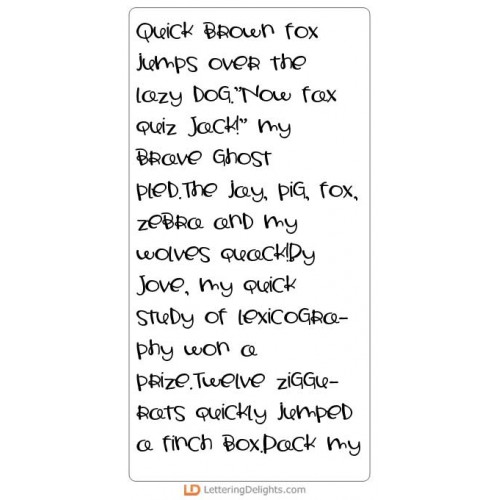 Quick Brown fox
jumps over the
lazy Dog."Now fax
quiz Jack!" my
Brave Ghost
pled.The jay, pig, fox,
zebra and my
wolves quack!By
Jove, my quick
study of lexicogra-
phy won a
prize.Twelve ziggu-
rats quickly jumped
a finch box.Pack my
LD LetteringDelights.com